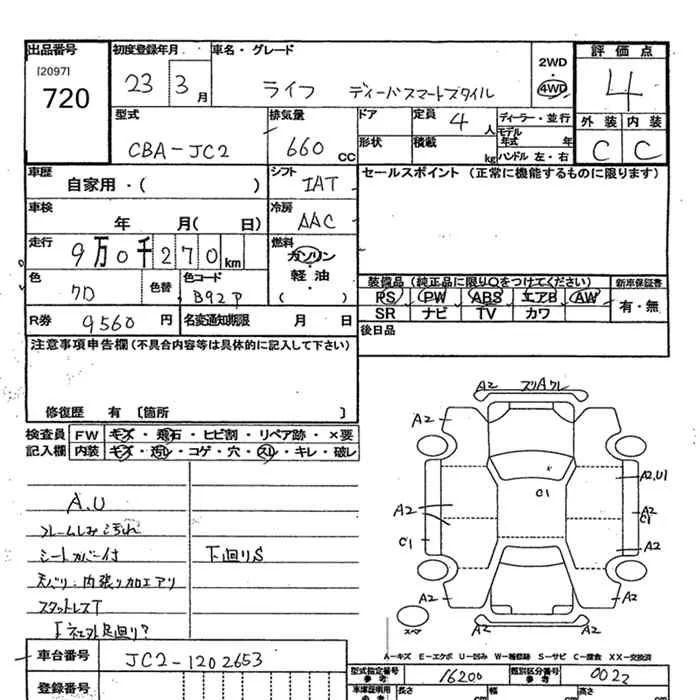 出品番号 初度登録年月 車名・グレード 2WD 評価点
[2097]
720
23 3月 ライフ ディーバスマートスタイル ・ 4WD 4
型式 排気量 ドア 定員 4人 ディーラー・並行 外装 内装
CBA-JC2 660cc 形状 積載 kg モデル年式 年 C C
ハンドル 左・右
車歴 シフト セールスポイント (正常に機能するものに限ります)
自家用・( ) IAT
車検 冷房
年 月( 日) AAC
走行 9万0千270km 燃料
ガソリン
・
軽油
( )
色 色替 色コード 装備品(純正品に限り○をつけてください) 新車保証書
B92P PS PW ABS エアB AW 有・無
SR ナビ TV カワ
R券 9560円 名変通知期限 月 日 後日品
注意事項申告欄(不具合内容等は具体的に記入して下さい)
修復歴 有 [箇所 ]
検査員 FW キズ・飛石・ヒビ割・リペア跡・×要
記入欄 内装 キズ・汚レ・コゲ・穴・スレ・キレ・破レ
A2
A2
A2,U1
C1
A2
A2
C1
C1
A2
A2
A2
A2
A.U
シートカバー付 下廻りS
天バリ:内張り加工アリ
スタットレスT
スペア
A-キズ E-エクボ U-凹み W-補修跡 S-サビ C-腐食 XX-交換済
車台番号 JC2-1202653
型式指定番号 参考 16200 類別区分番号 参考 0022
登録番号
車庫証明用 参考 長さ cm 幅 cm 高さ cm